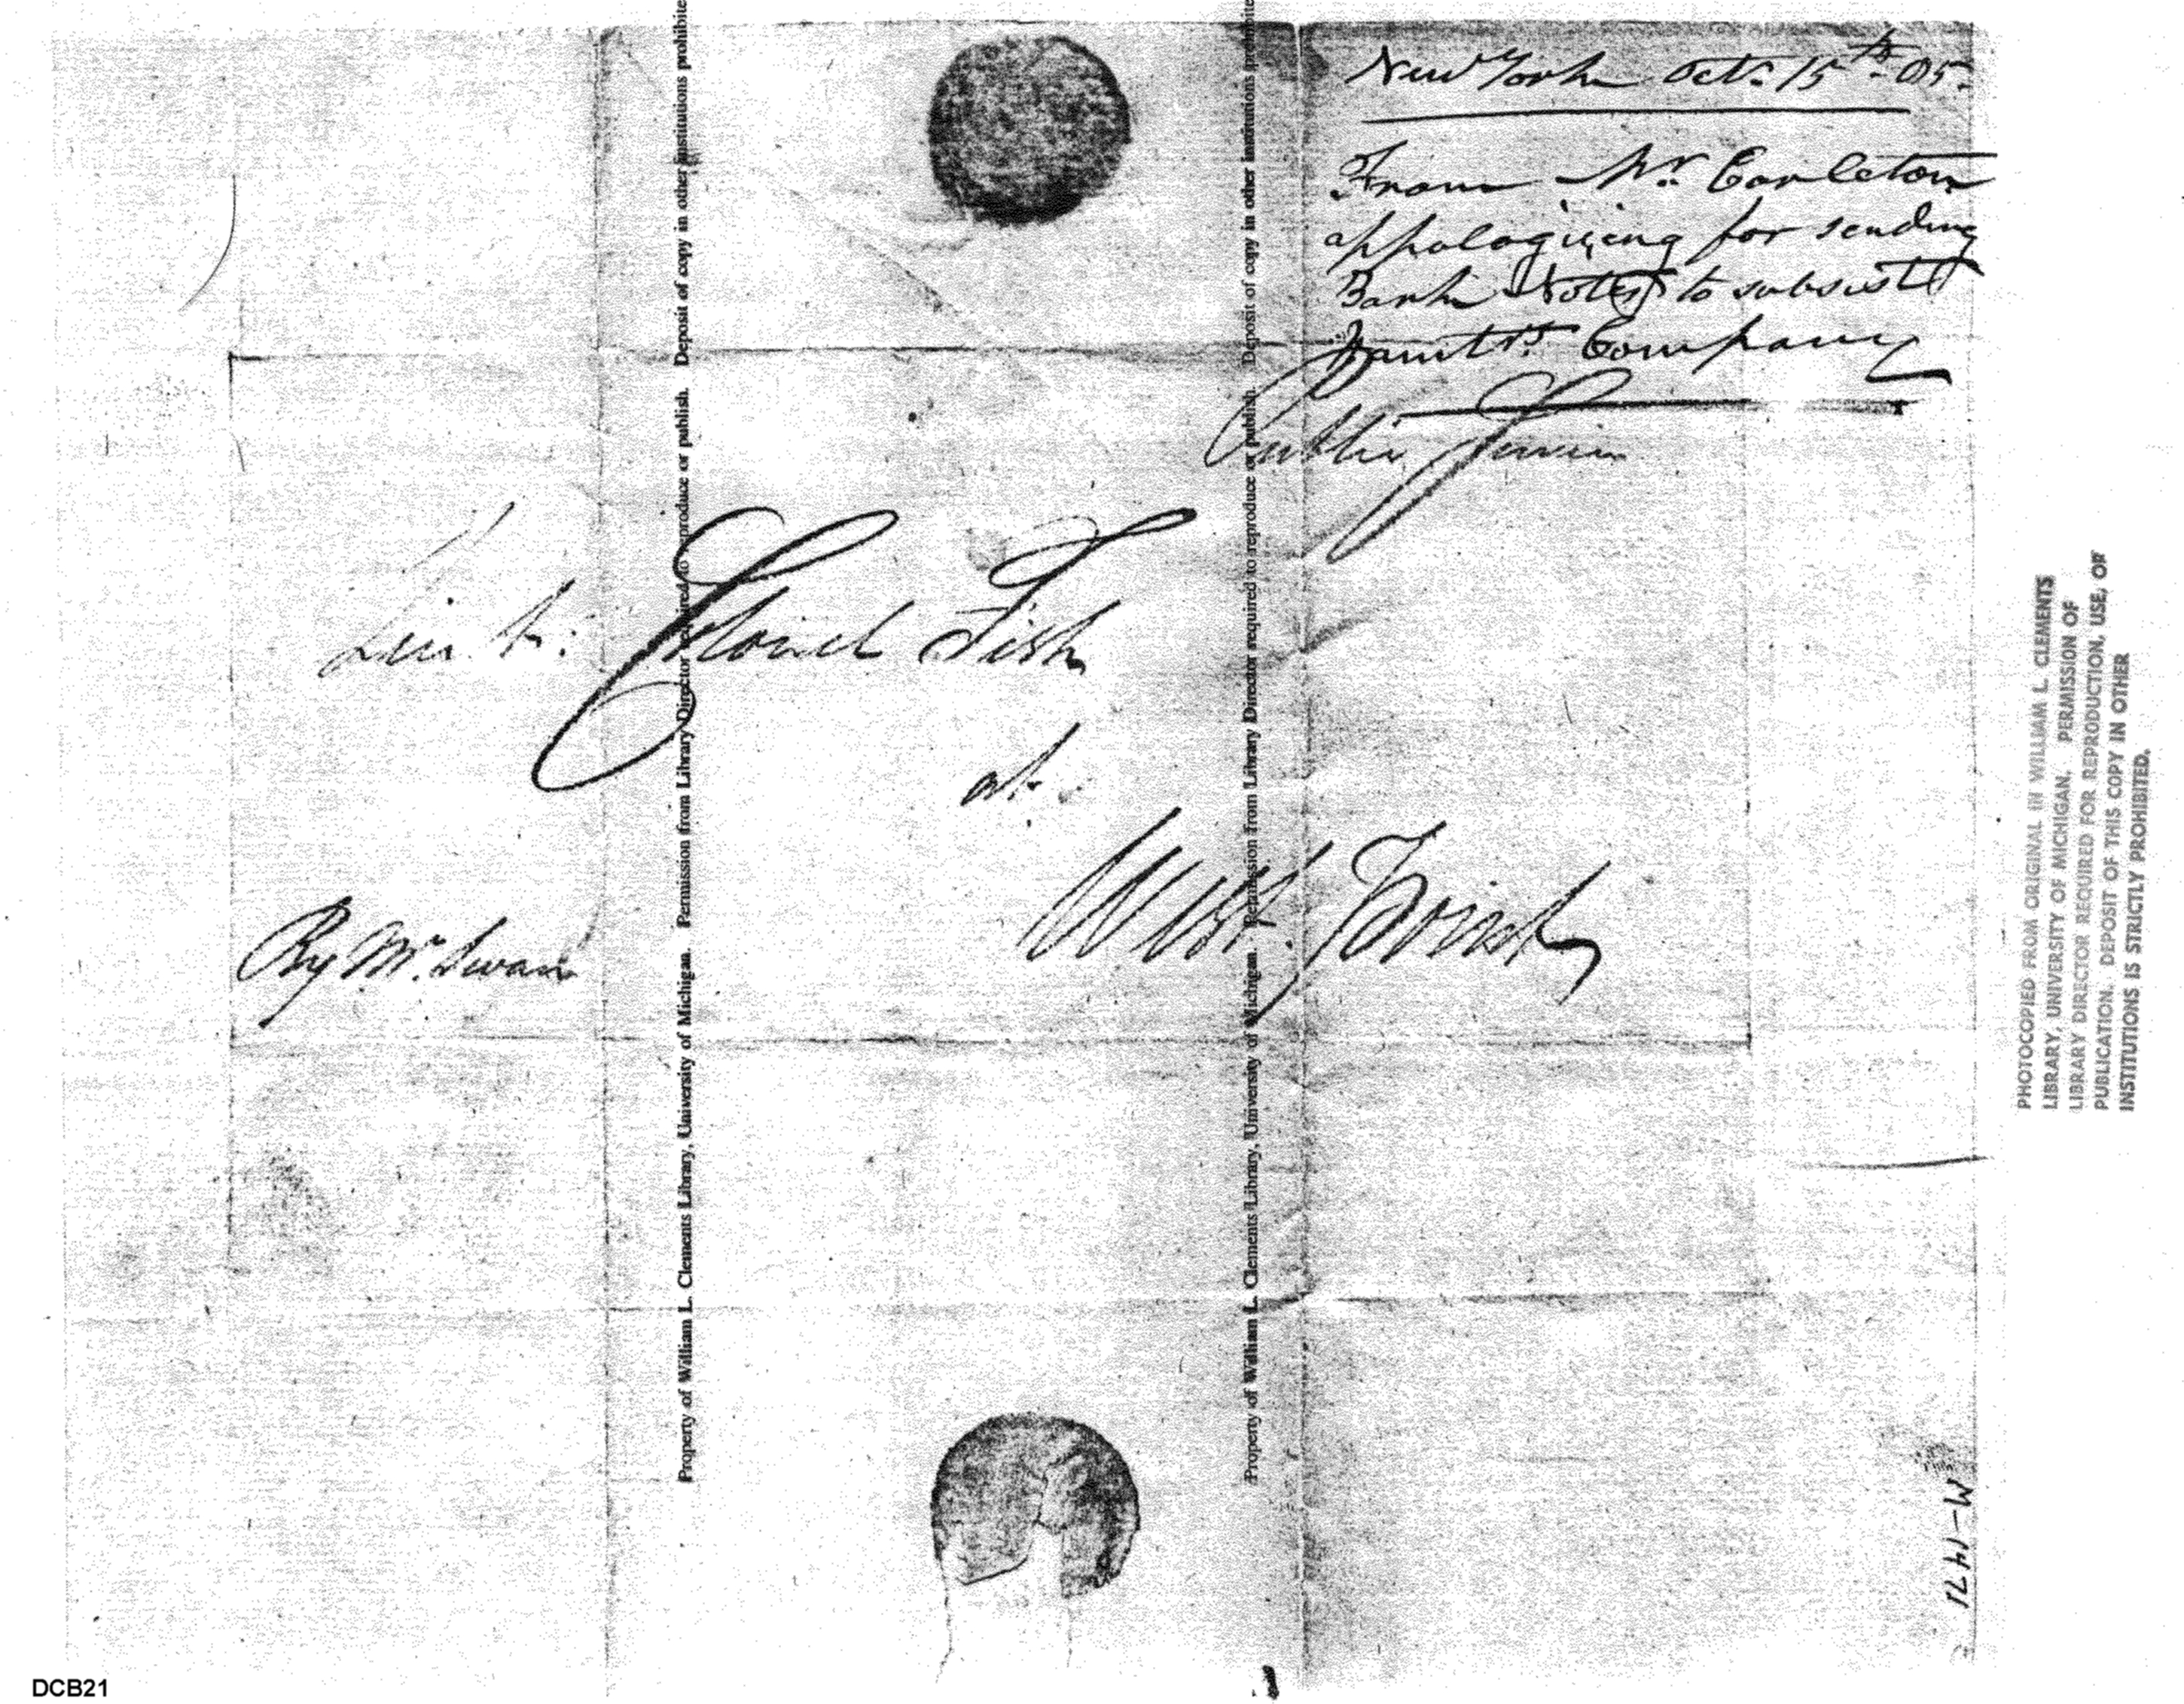 New York Octr. 15th. 85.
From Mr. Carleton
appologizing for sending
Bank Notes to subsist
Company
Public Service
Lieut: Colonel Fish
at
West Point
By Mr. Swan
Property of William L. Clements Library, University of Michigan. Permission from Library Director required to reproduce or publish. Deposit of copy in other institutions prohibite
Property of William L. Clements Library, University of Michigan. Permission from Library Director required to reproduce or publish. Deposit of copy in other institutions prohibite
PHOTOCOPIED FROM ORIGINAL IN WILLIAM L. CLEMENTS
LIBRARY, UNIVERSITY OF MICHIGAN. PERMISSION OF
LIBRARY DIRECTOR REQUIRED FOR REPRODUCTION, USE, OF
PUBLICATION. DEPOSIT OF THIS COPY IN OTHER
INSTITUTIONS IS STRICTLY PROHIBITED.
M-1471
DCB21